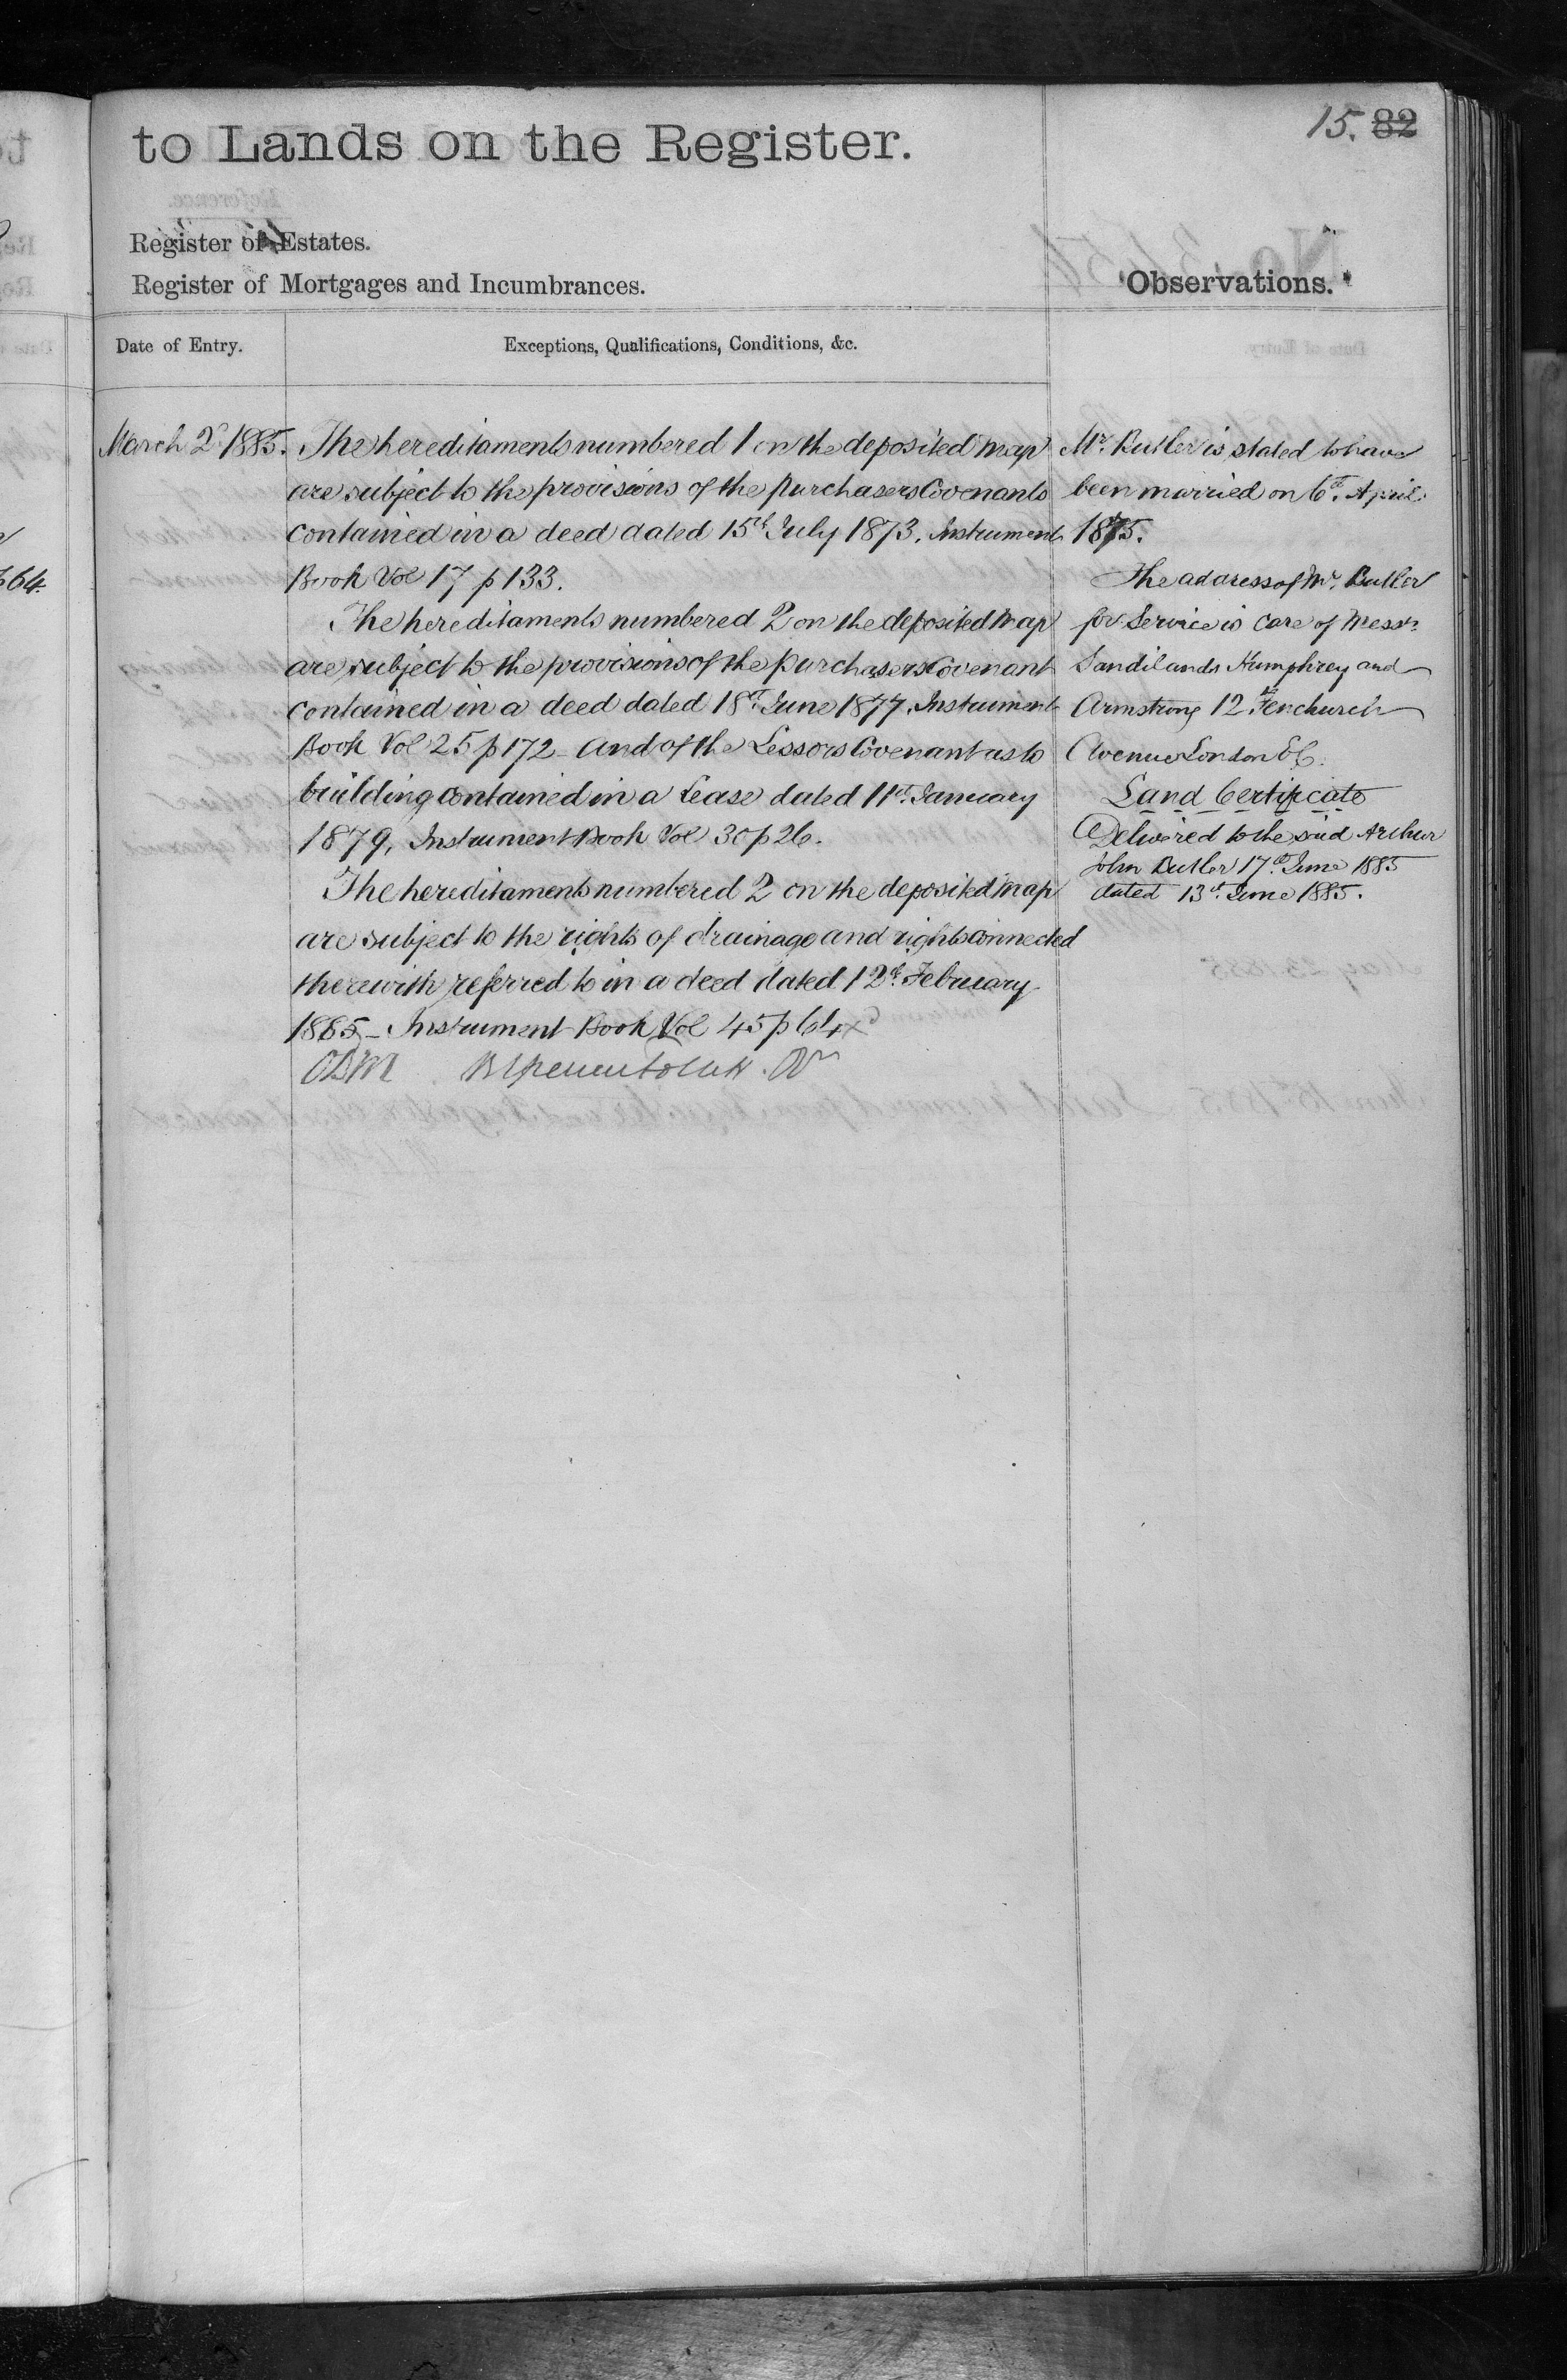 15. 82
to Lands on the Register.
Register of Estates.
Register of Mortgages and Incumbrances.
Observations.
Date of Entry.
Exceptions, Qualifications, Conditions, &c.
March 2d 1885.
The hereditaments numbered 1 on the deposited map
are subject to the provisions of the purchasers Covenants
contained in a deed dated 15th July 1873. Instrument
Book Vol 17 p 133.
The hereditaments numbered 2 on the deposited map
are subject to the provisions of the purchasers Covenant
contained in a deed dated 18th June 1877. Instrument
Book Vol 25 p 172 - and of the Lessors Covenant as to
building contained in a Lease dated 11th January
1879, Instrument Book Vol 30 p 26.
The hereditaments numbered 2 on the deposited map
are subject to the rights of drainage and rights connected
therewith referred to in a deed dated 12th February
1885 - Instrument Book Vol 45 p 64 x
Mr. Butler is stated to have
been married on 6th. April
1875.
The address of Mr. Butler
for Service is care of Messrs
Sandilands Humphrey and
Armstrong 12 Fenchurch
Avenue London E C.
Land Certificate
Delivered to the said Arthur
John Butler 17th. June 1885
dated 13th. June 1885.
64.